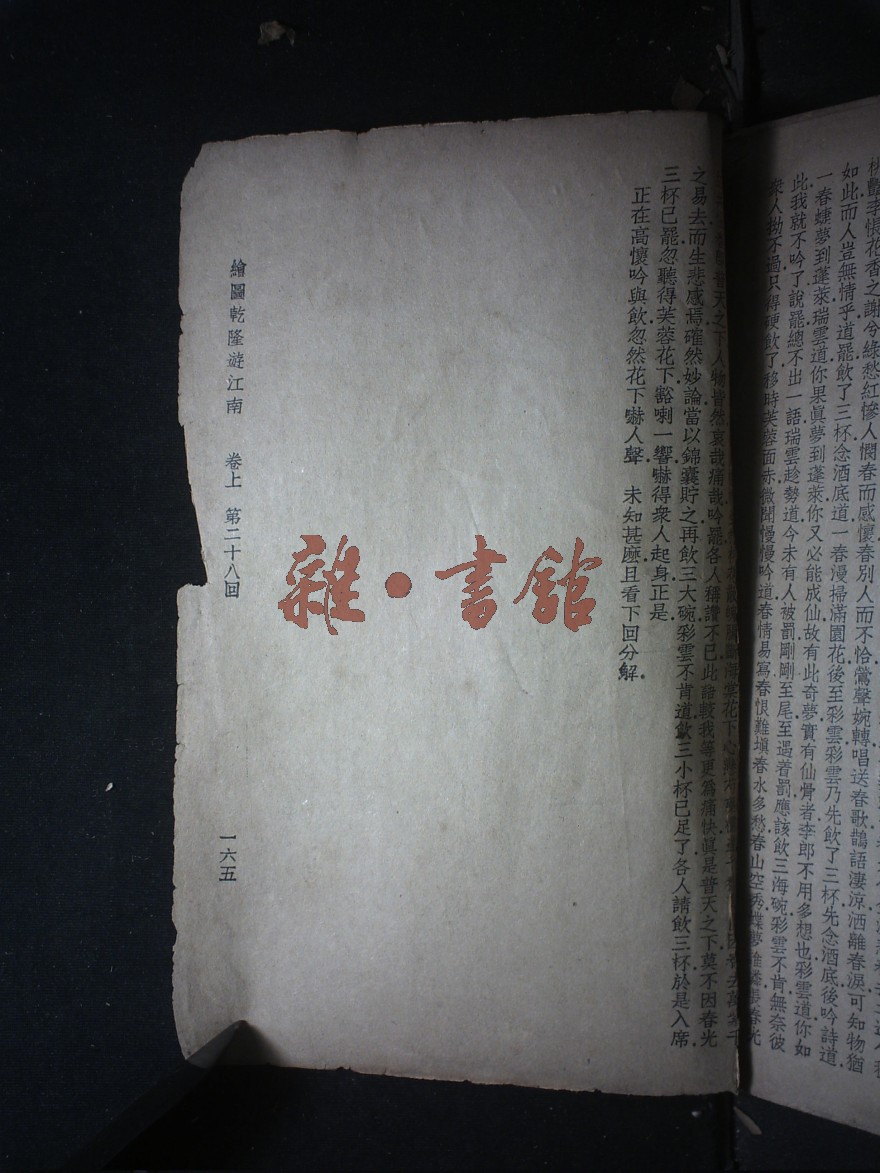 桃豔李悵花香之謝兮綠愁紅慘人憫春而感懷春別人而不怡鶯聲婉轉唱送春歌鵲語淒涼洒離春淚可知物猶
如此而人豈無情乎道罷飲了三杯念酒底道一春漫掃滿園花後至彩雲彩雲乃先飲了三杯先念酒底後吟詩道
一春蜨夢到蓬萊瑞雲道你果眞夢到蓬萊你又必能成仙故有此奇夢實有仙骨者李郎不用多想也彩雲道你如
此我就不吟了說罷總不出一語瑞雲趁勢道今未有人被罰剛剛至尾至遇着罰應該飲三海碗彩雲不肯無奈彼
衆人拗不過只得硬飲了移時芙蓉面赤微聞慢慢吟道春情易寫春恨難塡春水多愁春山空秀蝶夢春光
天之下人物皆然哀哉痛哉吟罷各人稱讚不已此語較我等更爲痛快眞是普天之下莫不因春光
之易去而生悲感焉確然妙論當以錦囊貯之再飲三大碗彩雲不肯道飲三小杯已足了各人請飲三杯於是入席
三杯已罷忽聽得芙蓉花下豁喇一響嚇得衆人起身正是
正在高懷吟與飲忽然花下嚇人聲　未知甚麽且看下回分解
繪圖乾隆遊江南　卷上　第二十八回
一六五
雜·書館